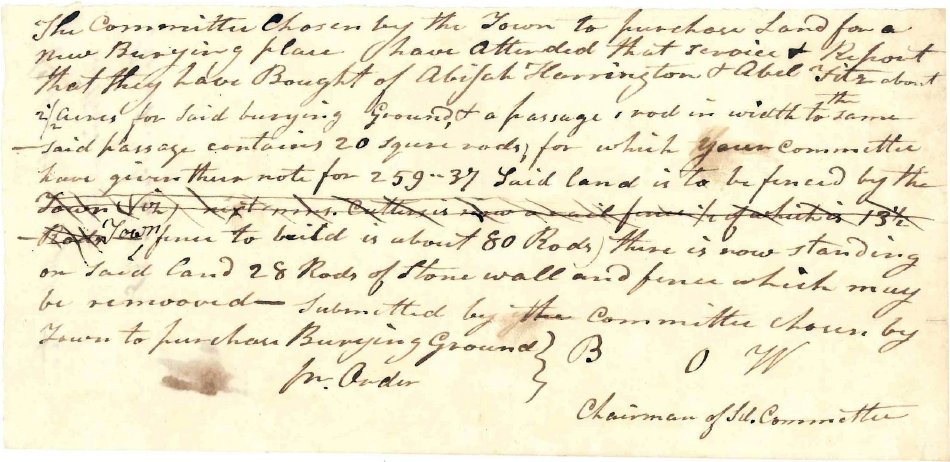 The Committee Chosen by the Town to purchase Land for a
new Burying place have Attended that service & Report
that they have Bought of Abijah Harrington & Abel Fitz about
2 1/2 Acres for Said burying Ground, & a passage 1 rod in width to the same
— Said passage contains 20 Squre rods, for which your Committee
have given their note for 259-37 Said land is to be fenced by the
Town (Viz) next mrs. Cutters is now a rail fence 1/2 of which is 13 1/2
— Rods Town fence to build is about 80 Rods) there is now standing
on Said Land 28 Rods of Stone wall and fence which may
be remooved — Submitted by the Committee chosen by
Town to purchase Burying Ground } B O W
pr. Order
Chairman of Sd. Committee